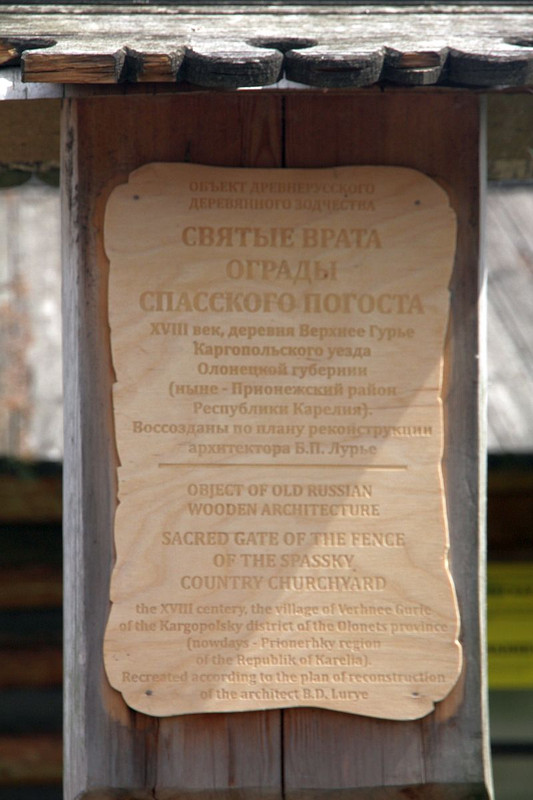 ОБЪЕКТ ДРЕВНЕРУССКОГО
ДЕРЕВЯННОГО ЗОДЧЕСТВА
СВЯТЫЕ ВРАТА
ОГРАДЫ
СПАССКОГО ПОГОСТА
XVIII век, деревня Верхнее Гурье
Каргопольского уезда
Олонецкой губернии
(ныне - Прионежский район
Республики Карелия).
Воссозданы по плану реконструкции
архитектора Б.П. Лурье
OBJECT OF OLD RUSSIAN
WOODEN ARCHITECTURE
SACRED GATE OF THE FENCE
OF THE SPASSKY
COUNTRY CHURCHYARD
the XVIII centery, the village of Verhnee Gurie
of the Kargopolsky district of the Olonets province
(nowdays - Prionerhky region
of the Republik of Karelia).
Recreated according to the plan of reconstruction
of the architect B.D. Lurye